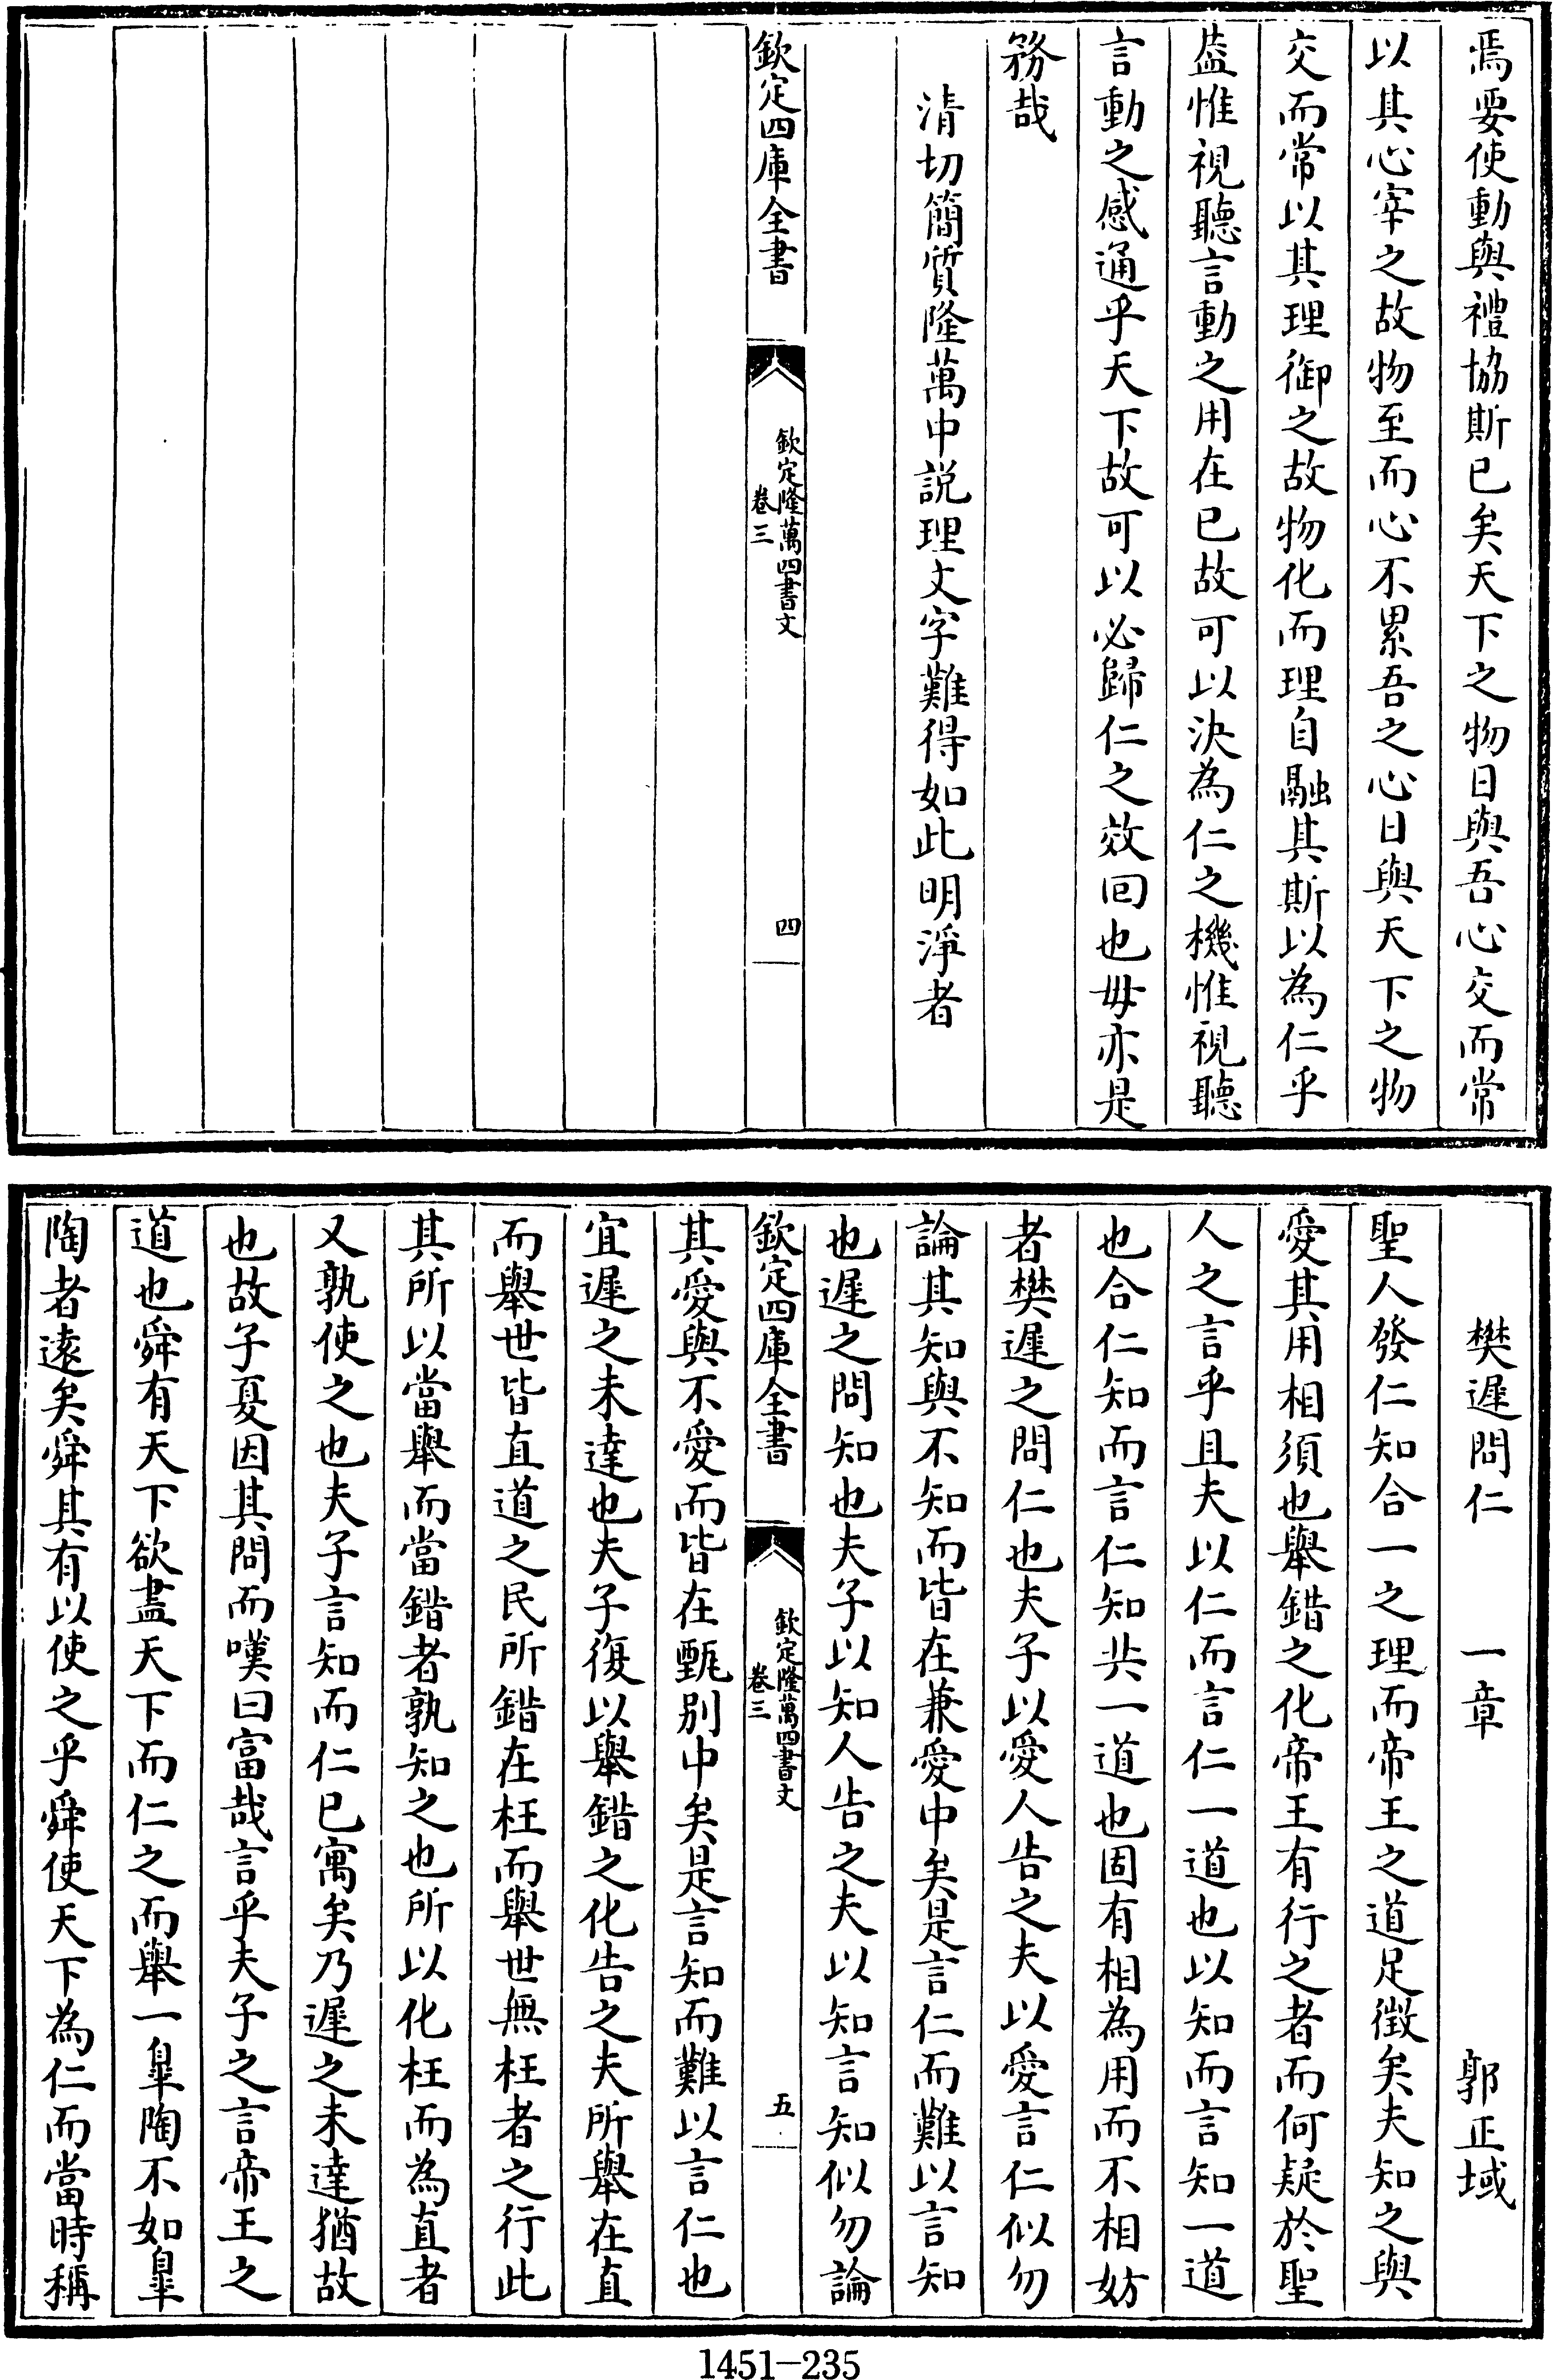 焉要使動與禮協斯已矣天下之物日與吾心交而常
以其心宰之故物至而心不累吾之心日與天下之物
交而常以其理御之故物化而理自融其斯以為仁乎
葢惟視聽言動之用在已故可以決為仁之機惟視聽
言動之感通乎天下故可以必歸仁之效回也毋亦是
務哉
清切簡質隆萬中説理文字難得如此明淨者
欽定四庫全書
欽定隆萬四書文
卷三
四
樊遲問仁 一章 郭正域
聖人發仁知合一之理而帝王之道足徴矣夫知之與
愛其用相須也舉錯之化帝王有行之者而何疑於聖
人之言乎且夫以仁而言仁一道也以知而言知一道
也合仁知而言仁知共一道也固有相為用而不相妨
者樊遲之問仁也夫子以愛人告之夫以愛言仁似勿
論其知與不知而皆在兼愛中矣是言仁而難以言知
也遲之問知也夫子以知人告之夫以知言知似勿論
欽定四庫全書
欽定隆萬四書文
卷三
五
其愛與不愛而皆在甄别中矣是言知而難以言仁也
宜遲之未達也夫子復以舉錯之化告之夫所舉在直
而舉世皆直道之民所錯在枉而舉世無枉者之行此
其所以當舉而當錯者孰知之也所以化枉而為直者
又孰使之也夫子言知而仁已寓矣乃遲之未達猶故
也故子夏因其問而嘆曰富哉言乎夫子之言帝王之
道也舜有天下欲盡天下而仁之而舉一臯陶不如臯
陶者遠矣舜其有以使之乎舜使天下為仁而當時稱
1451-235